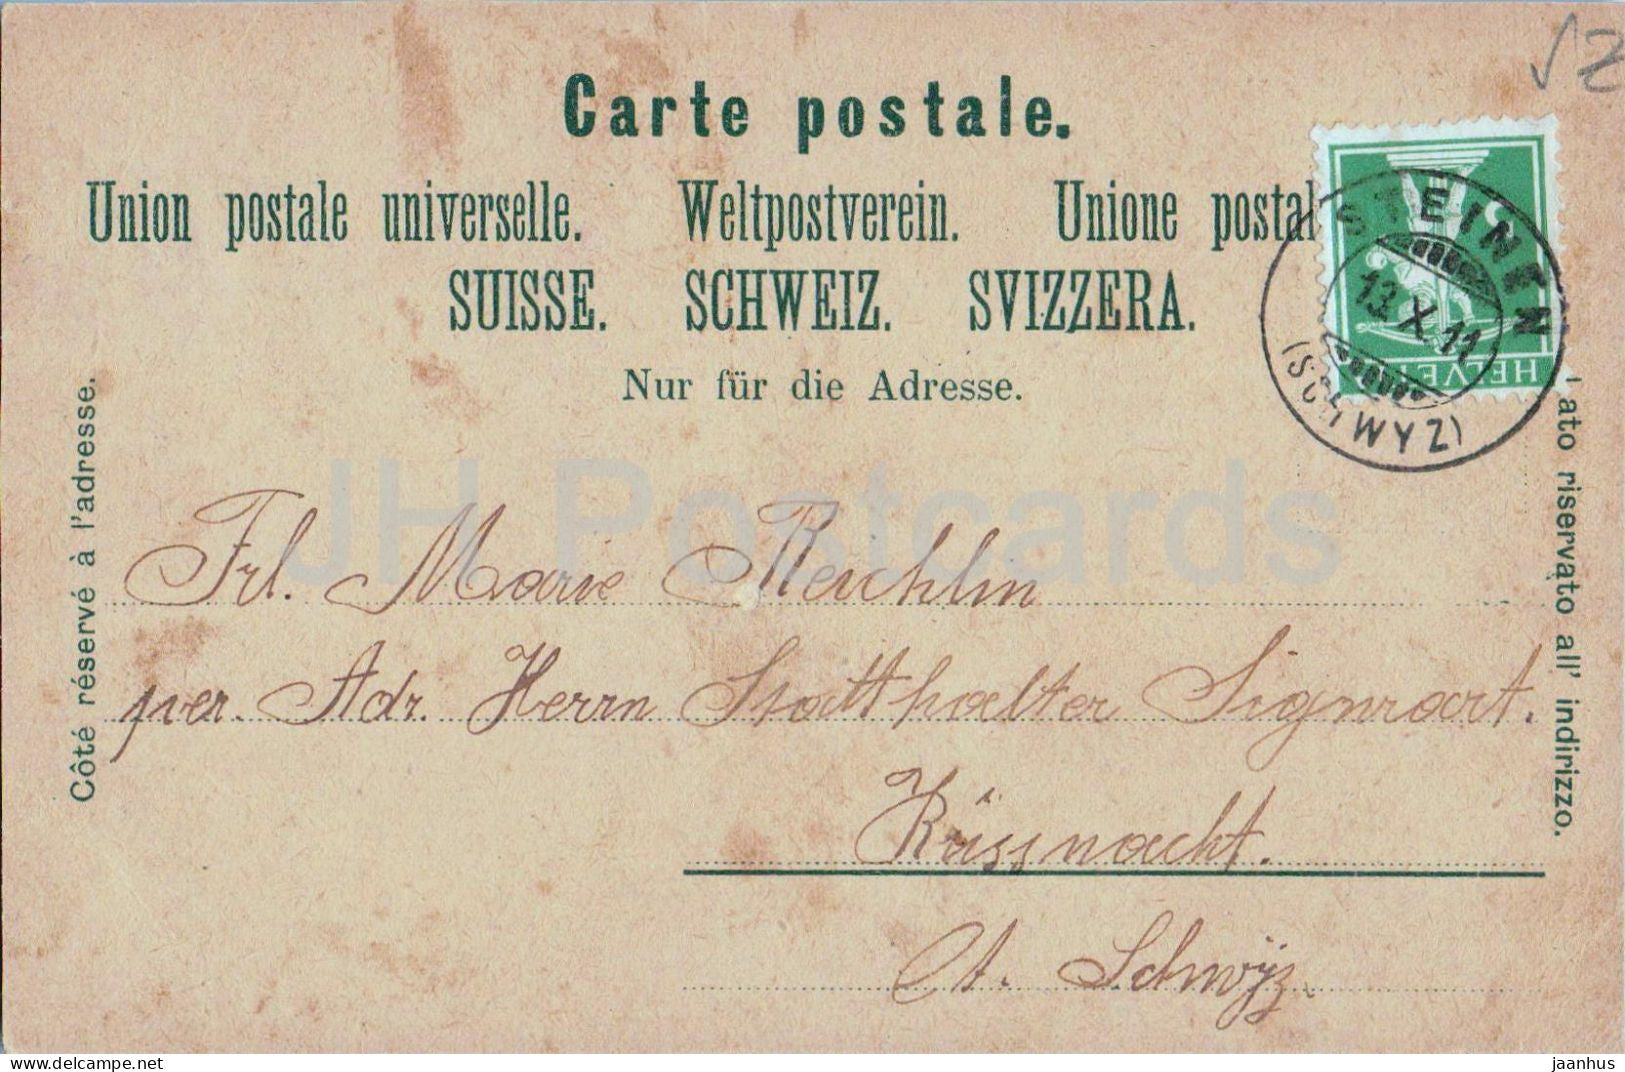 Carte postale.
Union postale universelle. Weltpostverein. Unione postal
SUISSE. SCHWEIZ. SVIZZERA.
Nur für die Adresse.
Côté réservé à l'adresse.
Lato riservato all' indirizzo.
STEINEN
13.X.11
(SCHWYZ)
HELVE
5
JH Postcards
Frl. Marie Reichlin
per. Adr. Herrn Statthalter Signwart.
Küssnacht.
Ct. Schwÿz.
www.delcampe.net
jaanhus